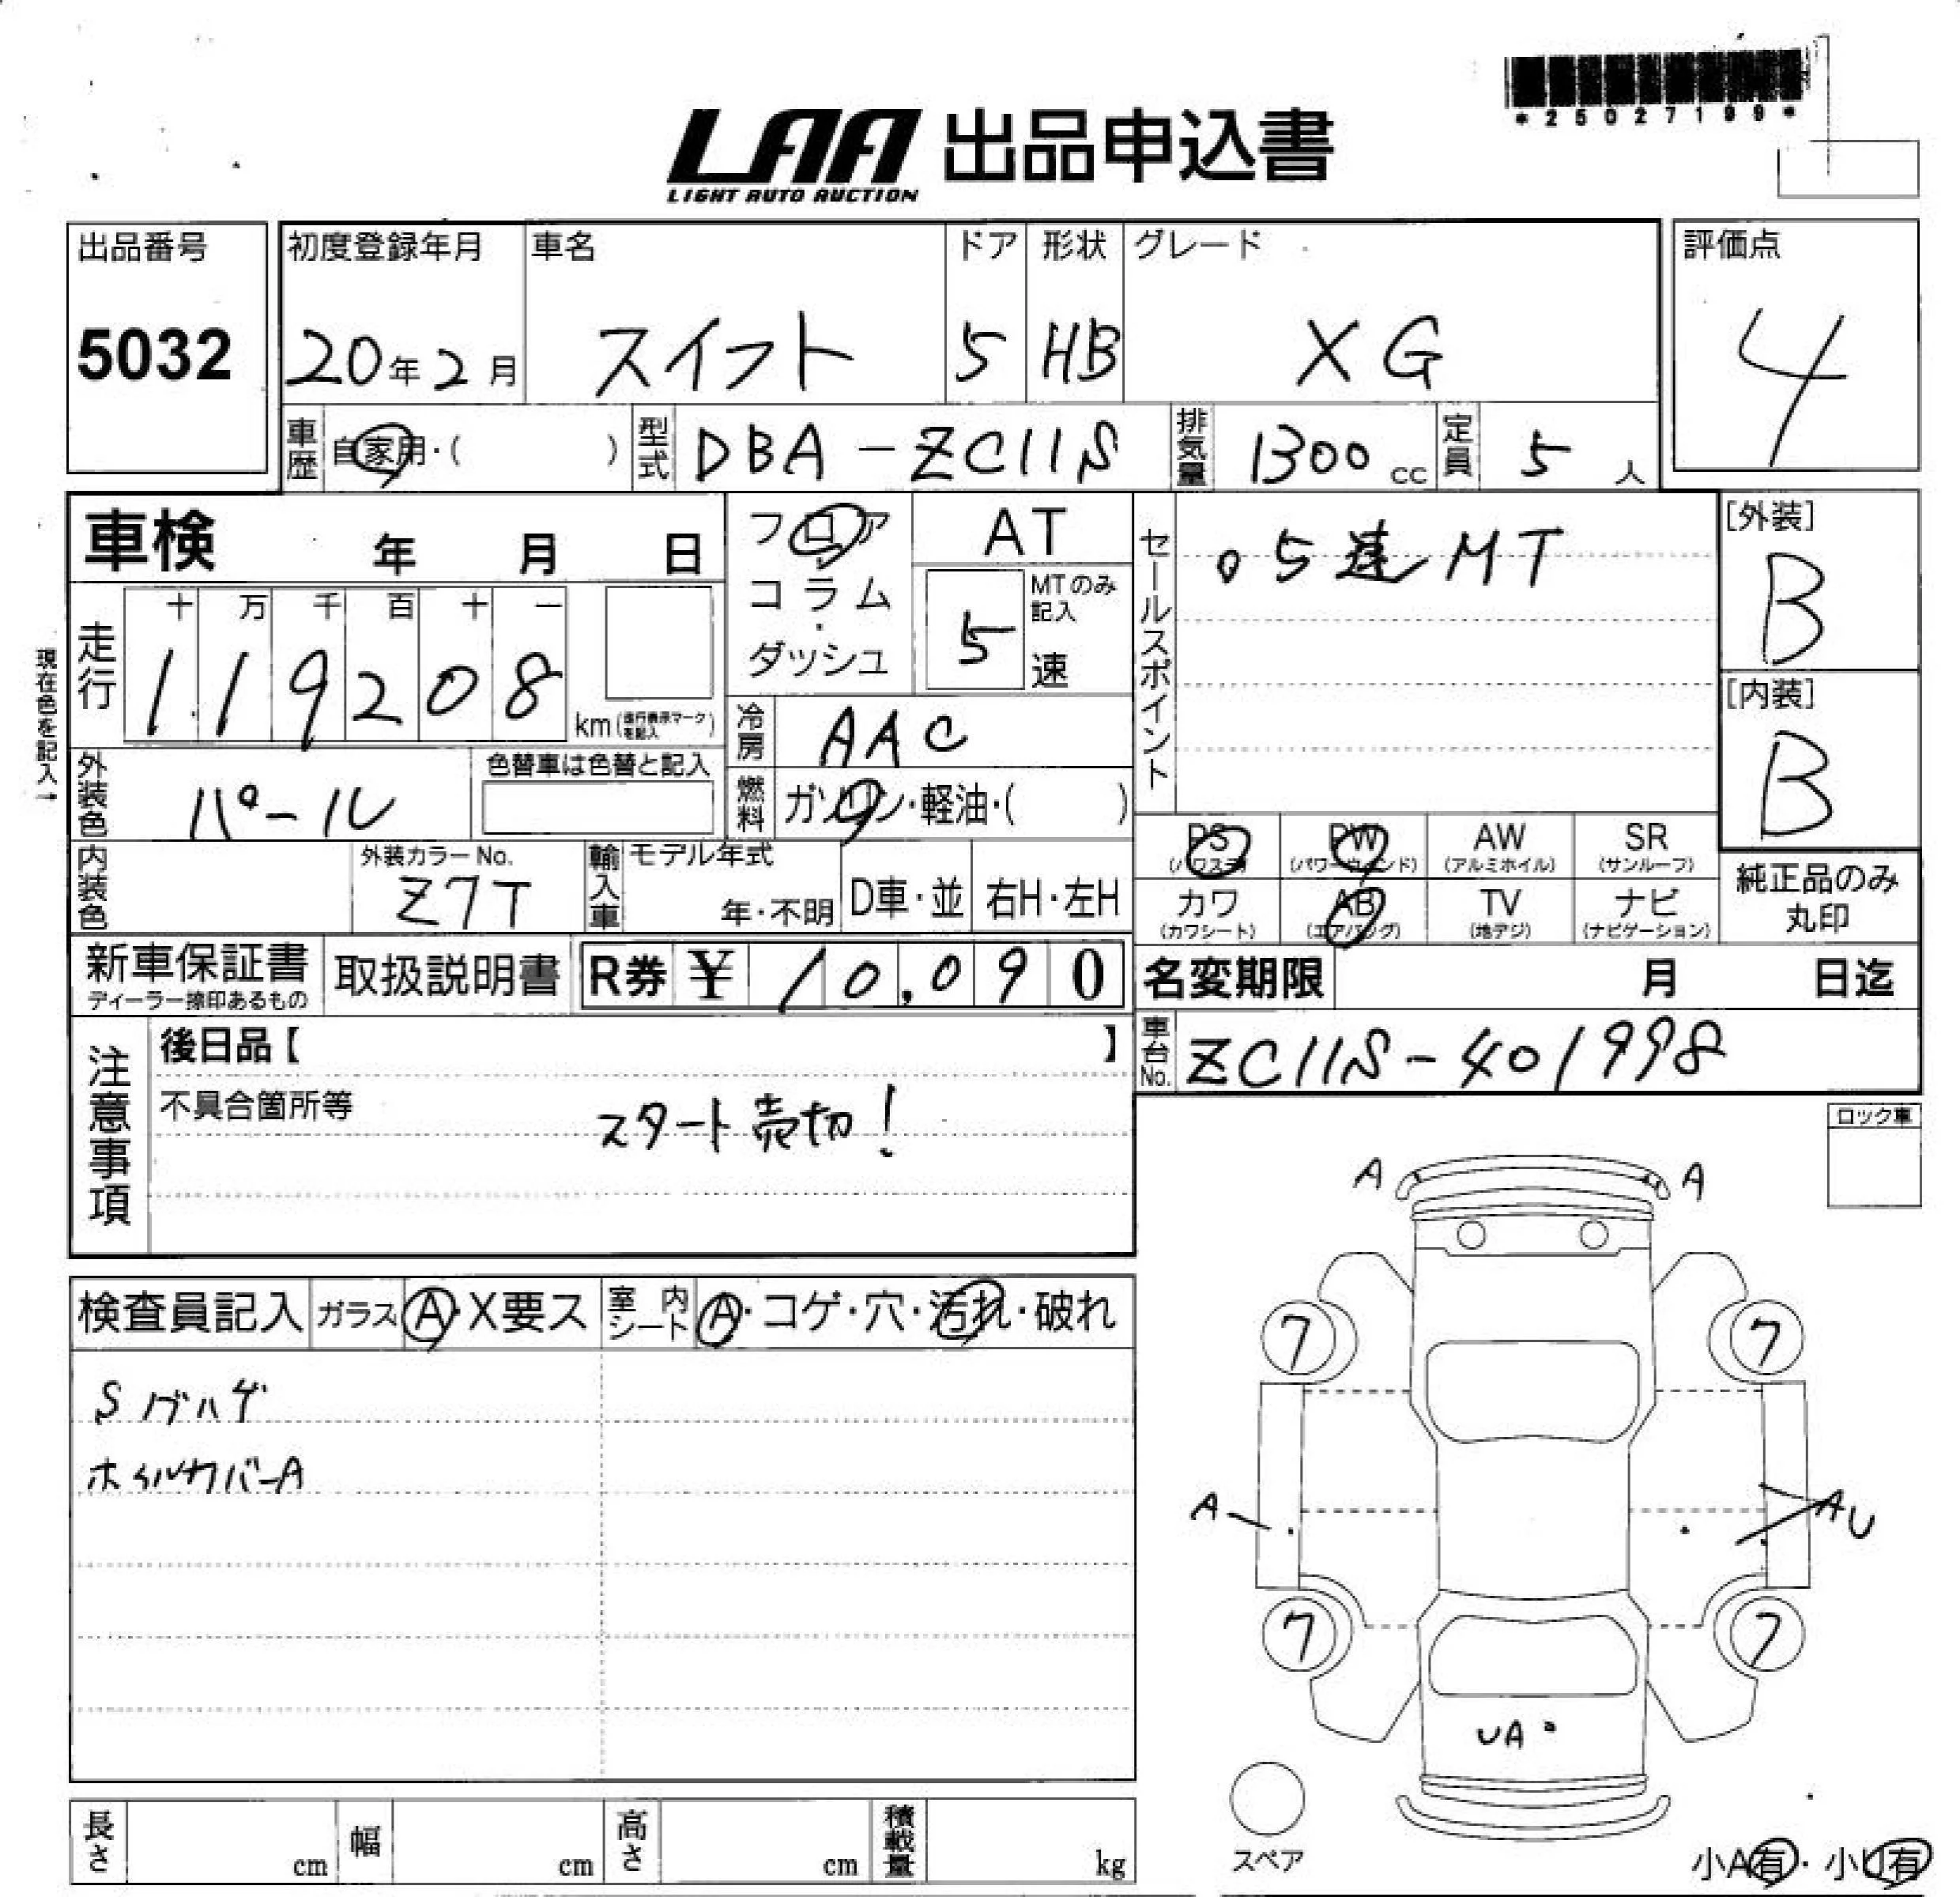 *25027199*
LAA 出品申込書
LIGHT AUTO AUCTION
出品番号 初度登録年月 車名 ドア 形状 グレード 評価点
5032 20年2月 スイフト 5 HB XG 4
車歴 自家用・( ) 型式 DBA-ZC11S 排気量 1300cc 定員 5人
車検 年 月 日 フロア AT セールスポイント ○5速MT [外装]
B
現在色を記入→
走行 十 万 千 百 十 一 コラム・ダッシュ 5速 MTのみ記入
119208 km(走行表示マークを記入) [内装]
B
冷房 AAC
外装色 パール 色替車は色替と記入 燃料 ガソリン・軽油・( )
PS (パワステ) PW (パワーウィンド) AW (アルミホイル) SR (サンルーフ)
カワ (カワシート) AB (エアバッグ) TV (地デジ) ナビ (ナビゲーション)
純正品のみ丸印
内装色 外装カラーNo. Z7T 輸入車 モデル年式 年・不明 D車・並 右H・左H
新車保証書 ディーラー捺印あるもの 取扱説明書 R券 ¥ 10,090 名変期限 月 日迄
注意事項 後日品【 】 車台No. ZC11S-401998
不具合箇所等 スタート売切!
ロック車
A A
検査員記入 ガラス A・X要ス 室内シート A・コゲ・穴・汚れ・破れ
7 7
Sノブハゲ
ホイルカバーA
A AU
7 7
UA
スペア
長さ cm 幅 cm 高さ cm 積載量 kg
小A有・小U有